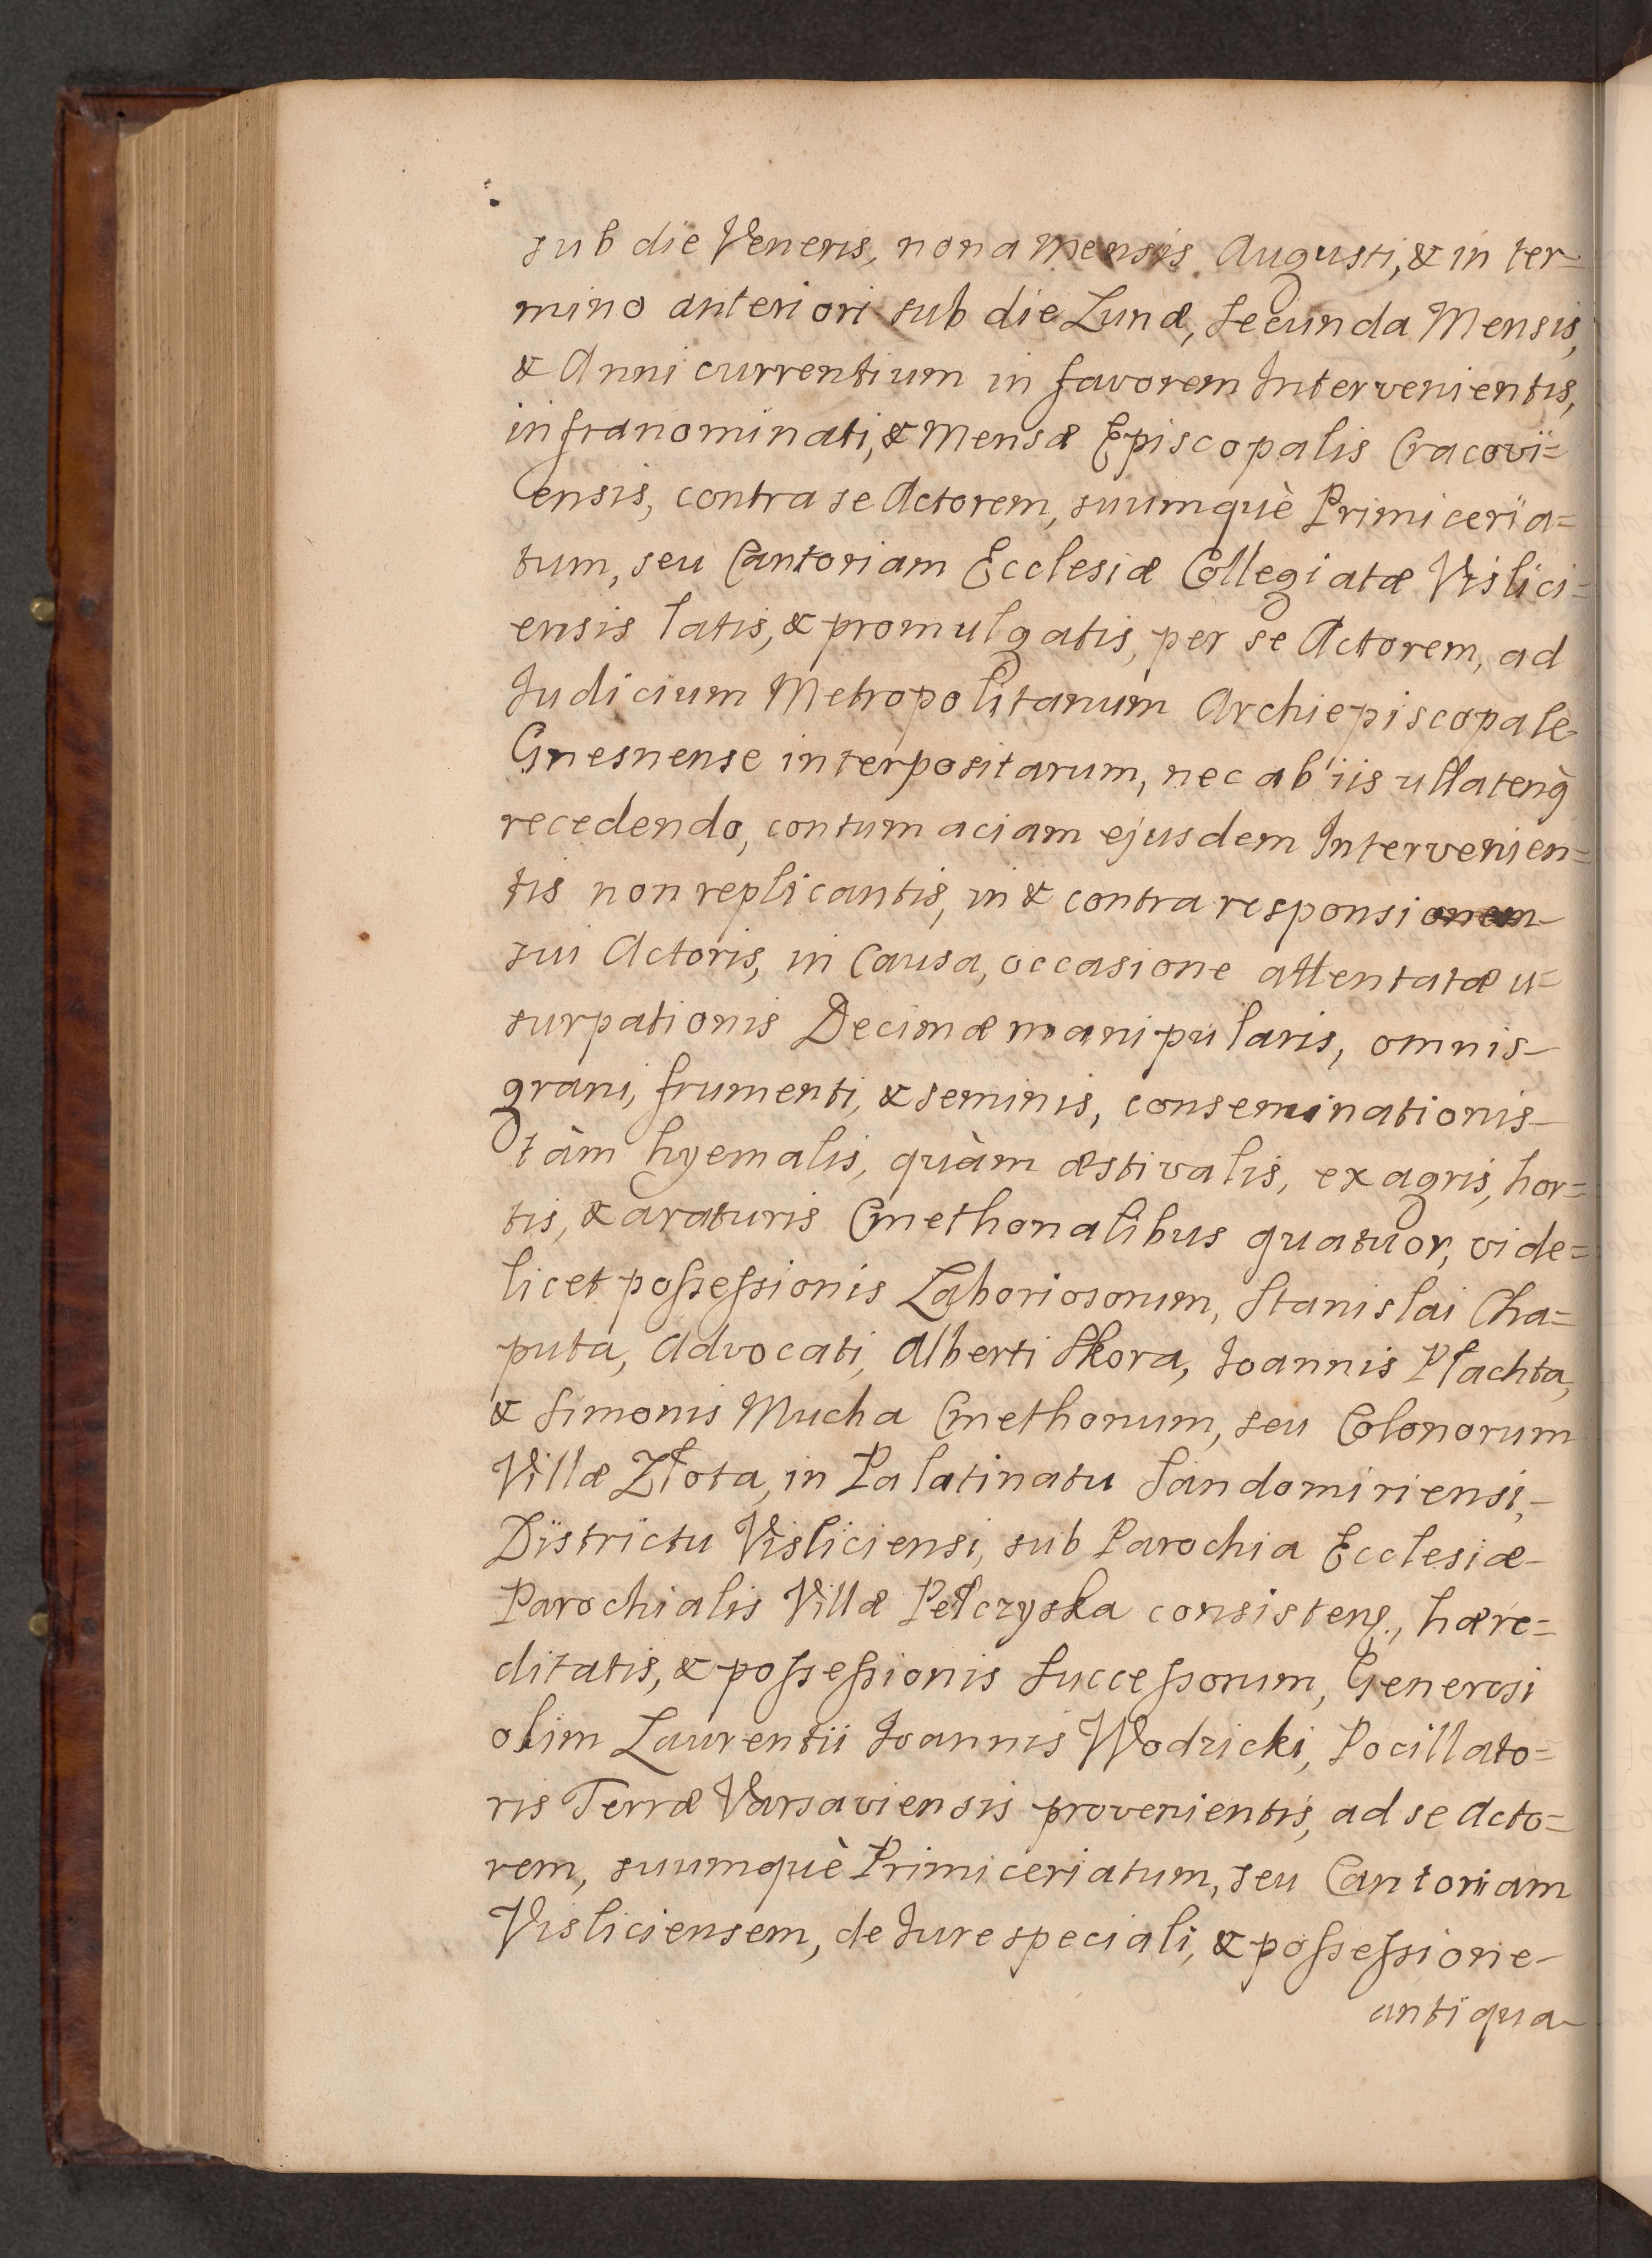 sub die Veneris, nona Mensis Augusti, & in ter=
mino anteriori sub die Lunæ, secunda Mensis,
& Anni currentium in favorem Intervenientis,
infranominati, & Mensæ Episcopalis Cracovi=
ensis, contra se Actorem, suumquè Primiceria=
tum, seu Cantoriam Ecclesiæ Collegiatæ Vislici=
ensis latis, & promulgatis, per se Actorem, ad
Judicium Metropolitanum Archiepiscopale
Gnesnense interpositarum, nec ab iis ullatenq̀
recedendo, contumaciam ejusdem Intervenien=
tis non replicantis, in & contra responsionem
sui Actoris, in Causa, occasione attentatæ u=
surpationis Decimæ manipularis, omnis
grani, frumenti, & seminis, conseminationis
tàm hyemalis, quàm æstivalis, ex agris, hor=
tis, & araturis Cmethonalibus quatuor, vide=
licet possessionis Laboriosorum, Stanislai Cha=
puta, Advocati, Alberti Skora, Joannis Płachta,
& Simonis Mucha Cmethonum, seu Colonorum
Villæ Złota, in Palatinatu Sandomiriensi,
Districtu Visliciensi, sub Parochia Ecclesiæ
Parochialis Villæ Pełczyska consisten., hære=
ditatis, & possessionis Successorum, Generosi
olim Laurentii Joannis Wodzicki, Pocillato=
ris Terræ Varsaviensis provenientis, ad se Acto=
rem, suumquè Primiceriatum, seu Cantoriam
Visliciensem, de Jure speciali, & possessione
antiqua